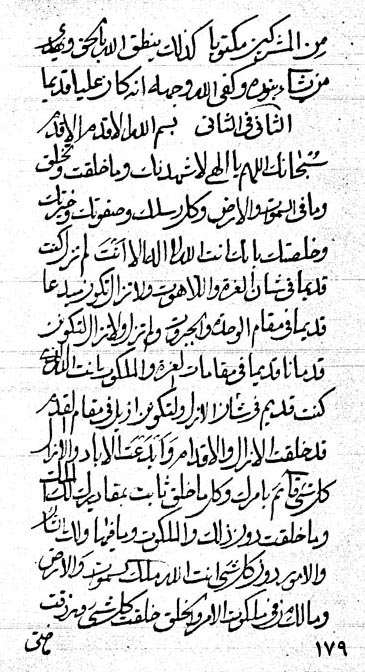 من المشركين مكتوبا كذلك ينطق الله بالحق ويهدي
من يشاء بنوره وكفى الله وحمله انه كان عليا قديما
الثاني في الثاني بسم الله الاقدم الاقدم
سبحانك اللهم يا الهي لاشهدنك وما خلقت وتخلق
وما في السموات والارض وكل رسلك وصفوتك وخيرتك
وخلصتك بانك انت الله لا اله الا انت لم تزل كنت
قديما في شأن العزة واللاهوت ولا تزال لتكونن مبدعا
قديما في مقام الوحدة والجبروت ولم تزل ولا تزال لتكونن
قدمانا قديما في مقامات العزة والملكوت انت الله الذي
كنت قديم في شأن الازل ولتكونن ازيل في مقام القدم
قد خلقت الازل والاقدام وابدعت الاباد والازال
كل شيء قائم بامرك وكل ما خلق ثابت بمقاديرك لك الملك
وما خلقت دون ذلك والملكوت وما فيها ولك
والامر دون كل شيء انت الله ملك السموات والارض
ومالك في ملكوت الامر والخلق خلقت كل شيء ورزقت
١٧٩